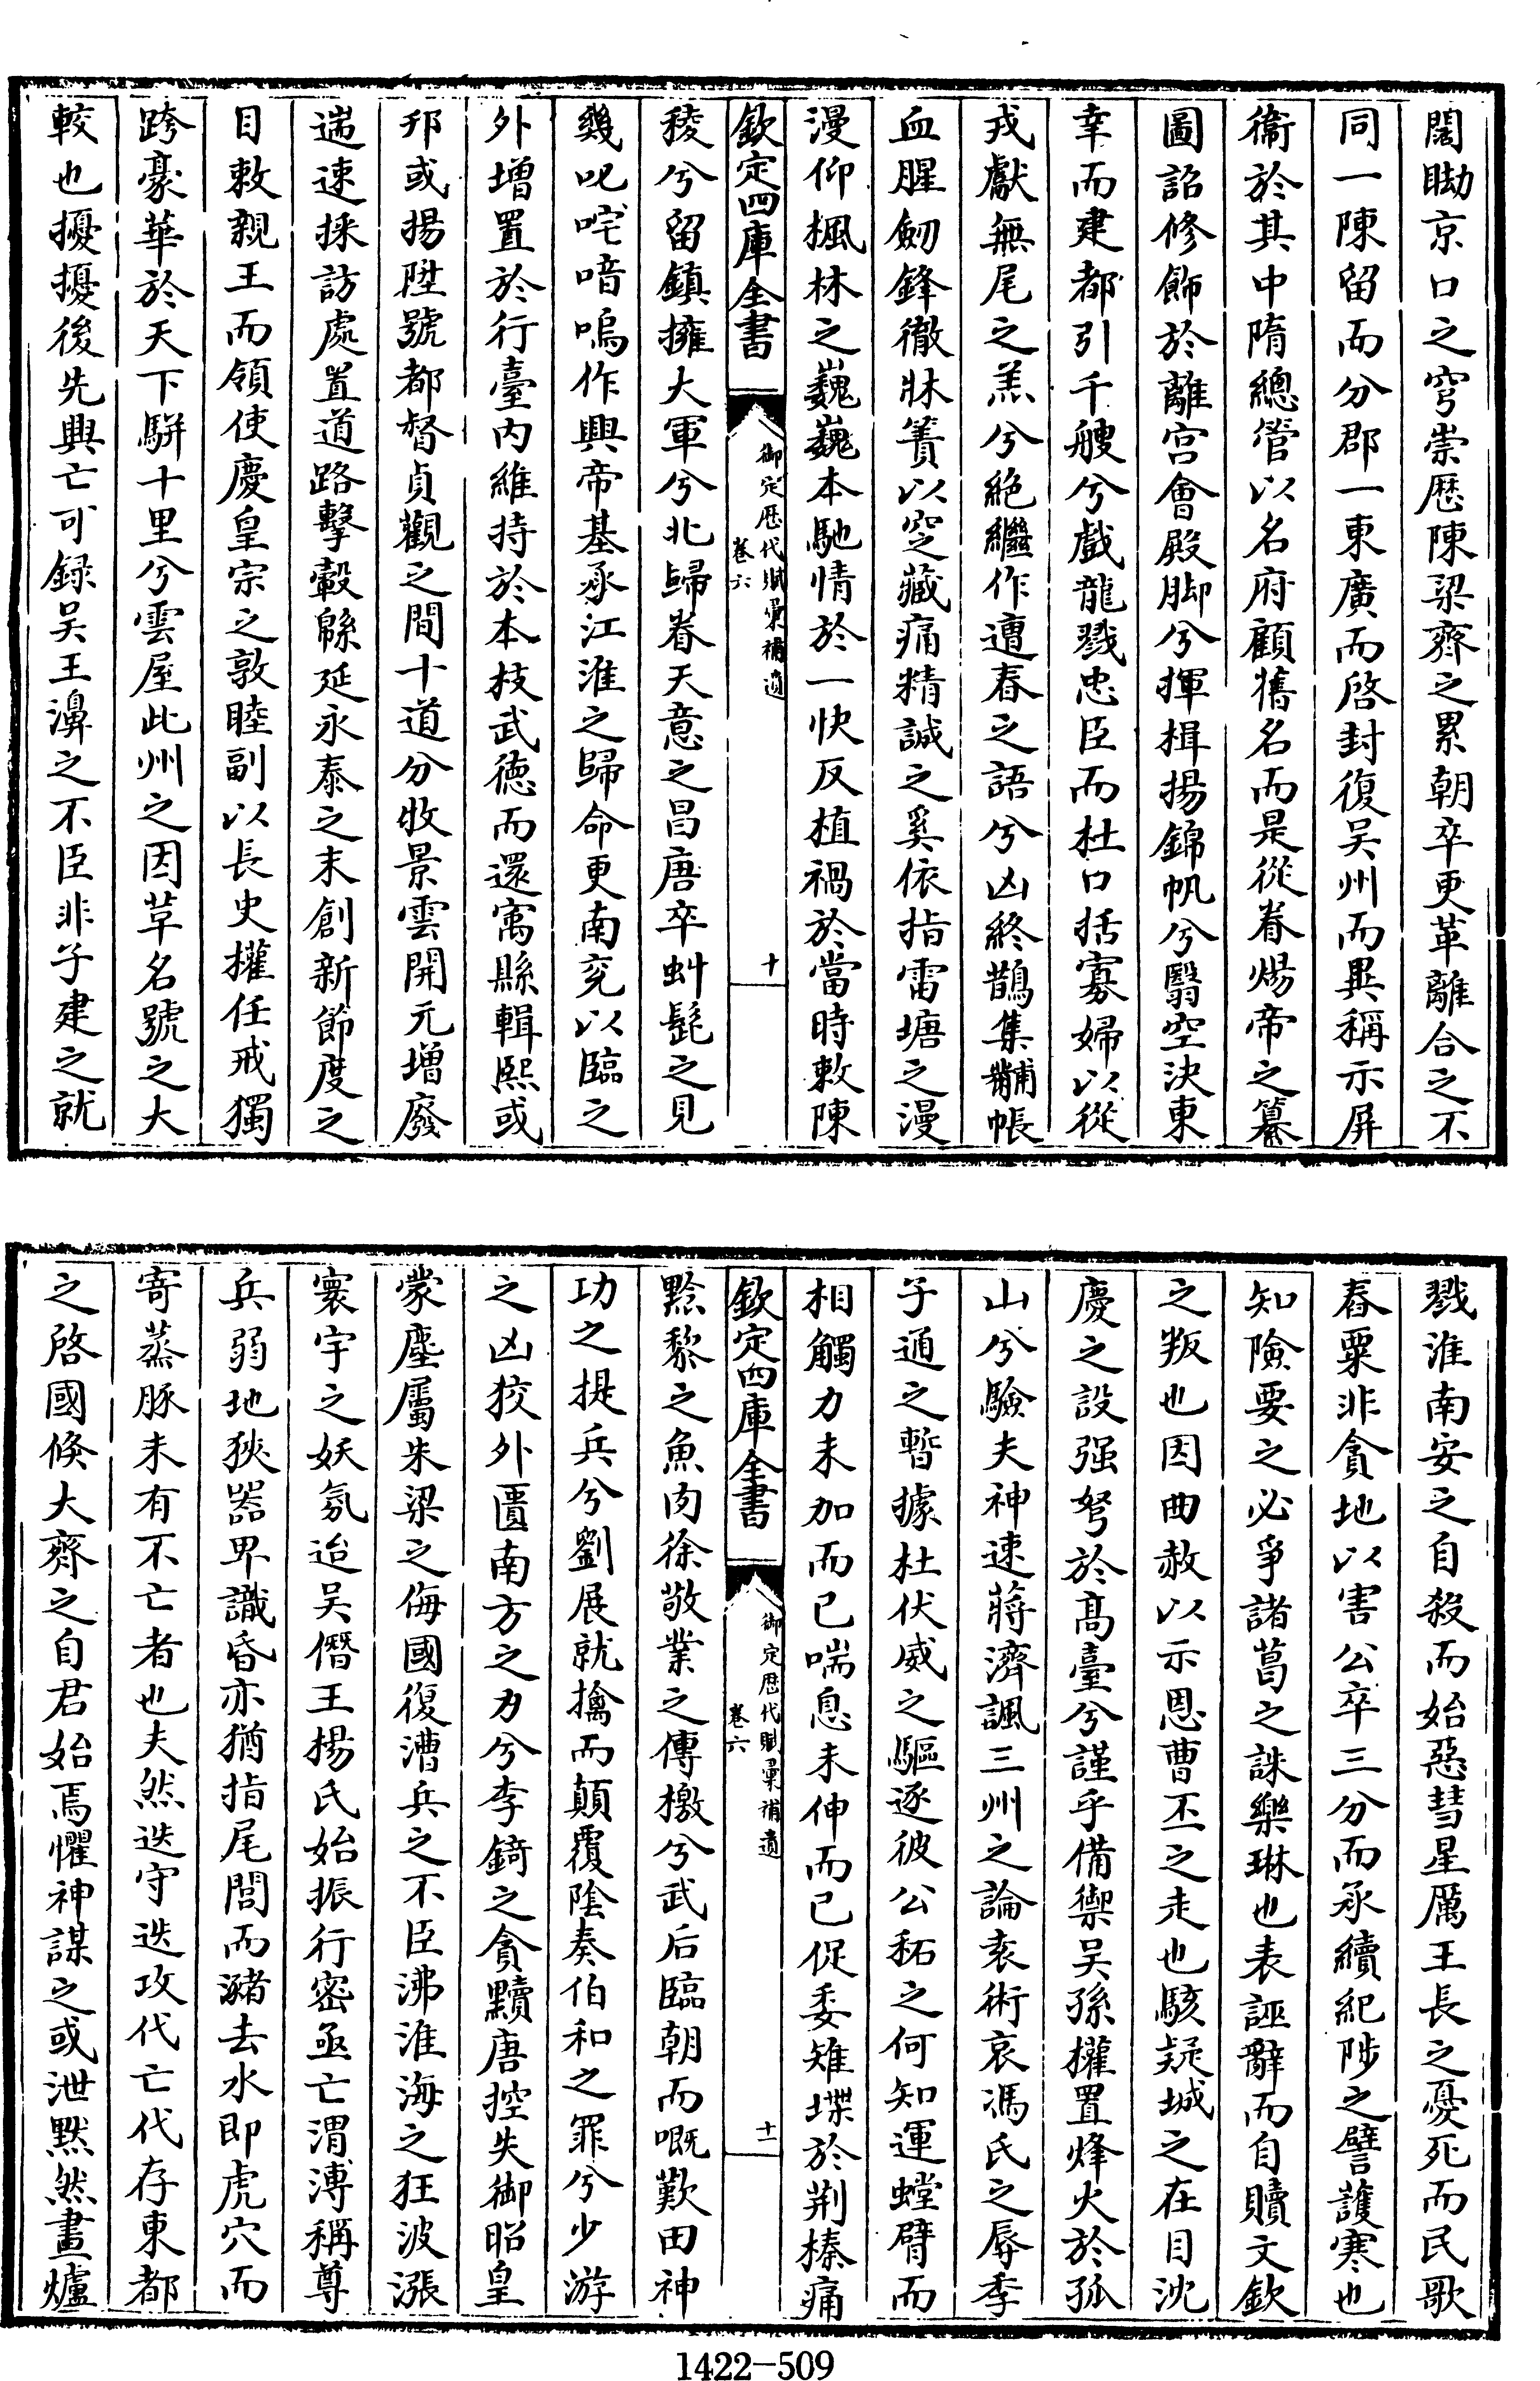 闊瞰京口之穹崇歷陳梁齊之累朝卒更革離合之不
同一陳留而分郡一東廣而啓封復吳州而異稱示屏
衞於其中隋總管以名府顧舊名而是從眷煬帝之纂
圖詔修飾於離宮會殿脚兮揮楫揚錦帆兮翳空決東
幸而建都引千艘兮戲龍戮忠臣而杜口括寡婦以從
戎獻無尾之羔兮絶繼作遭春之語兮凶終鵲集黼帳
血腥劒鋒徹牀簀以窆藏痛精誠之奚依指雷塘之漫
漫仰楓林之巍巍本馳情於一快反植禍於當時敕陳
欽定四庫全書
御定歷代賦彙補遺
卷六
十
稜兮留鎮擁大軍兮北歸眷天意之昌唐卒虯髭之見
幾叱咤喑嗚作興帝基承江淮之歸命更南兗以臨之
外增置於行臺內維持於本枝武德而還寓縣輯熙或
邗或揚陞號都督貞觀之間十道分牧景雲開元增廢
遄速採訪處置道路擊轂緜延永泰之末創新節度之
目敕親王而領使慶皇宗之敦睦副以長史權任戒獨
跨豪華於天下駢十里兮雲屋此州之因革名號之大
較也擾擾後先興亡可録吳王濞之不臣非子建之就
戮淮南安之自殺而始惡彗星厲王長之憂死而民歌
舂粟非貪地以害公卒三分而承續紀陟之譬護寒也
知險要之必爭諸葛之誅樂琳也表誣辭而自贖文欽
之叛也因曲赦以示恩曹丕之走也駭疑城之在目沈
慶之設强弩於高臺兮謹乎備禦吳孫權置烽火於孤
山兮驗夫神速蔣濟諷三州之論袁術哀馮氏之辱李
子通之暫據杜伏威之驅逐彼公祏之何知運螳臂而
相觸力未加而已喘息未伸而已促委雉堞於荆榛痛
欽定四庫全書
御定歷代賦彙補遺
卷六
十一
黔黎之魚肉徐敬業之傳檄兮武后臨朝而嘅歎田神
功之提兵兮劉展就擒而顛覆陰奏伯和之罪兮少游
之凶狡外匱南方之力兮李錡之貪黷唐控失御昭皇
蒙塵屬朱梁之侮國復漕兵之不臣沸淮海之狂波漲
寰宇之妖氛迨吳僭王揚氏始振行密亟亡渭溥稱尊
兵弱地狹器卑識昏亦猶指尾閭而瀦去水即虎穴而
寄蒸豚未有不亡者也夫然迭守迭攻代亡代存東都
之啓國倏大齊之自君始焉懼神謀之或泄默然畫爐
1422-509